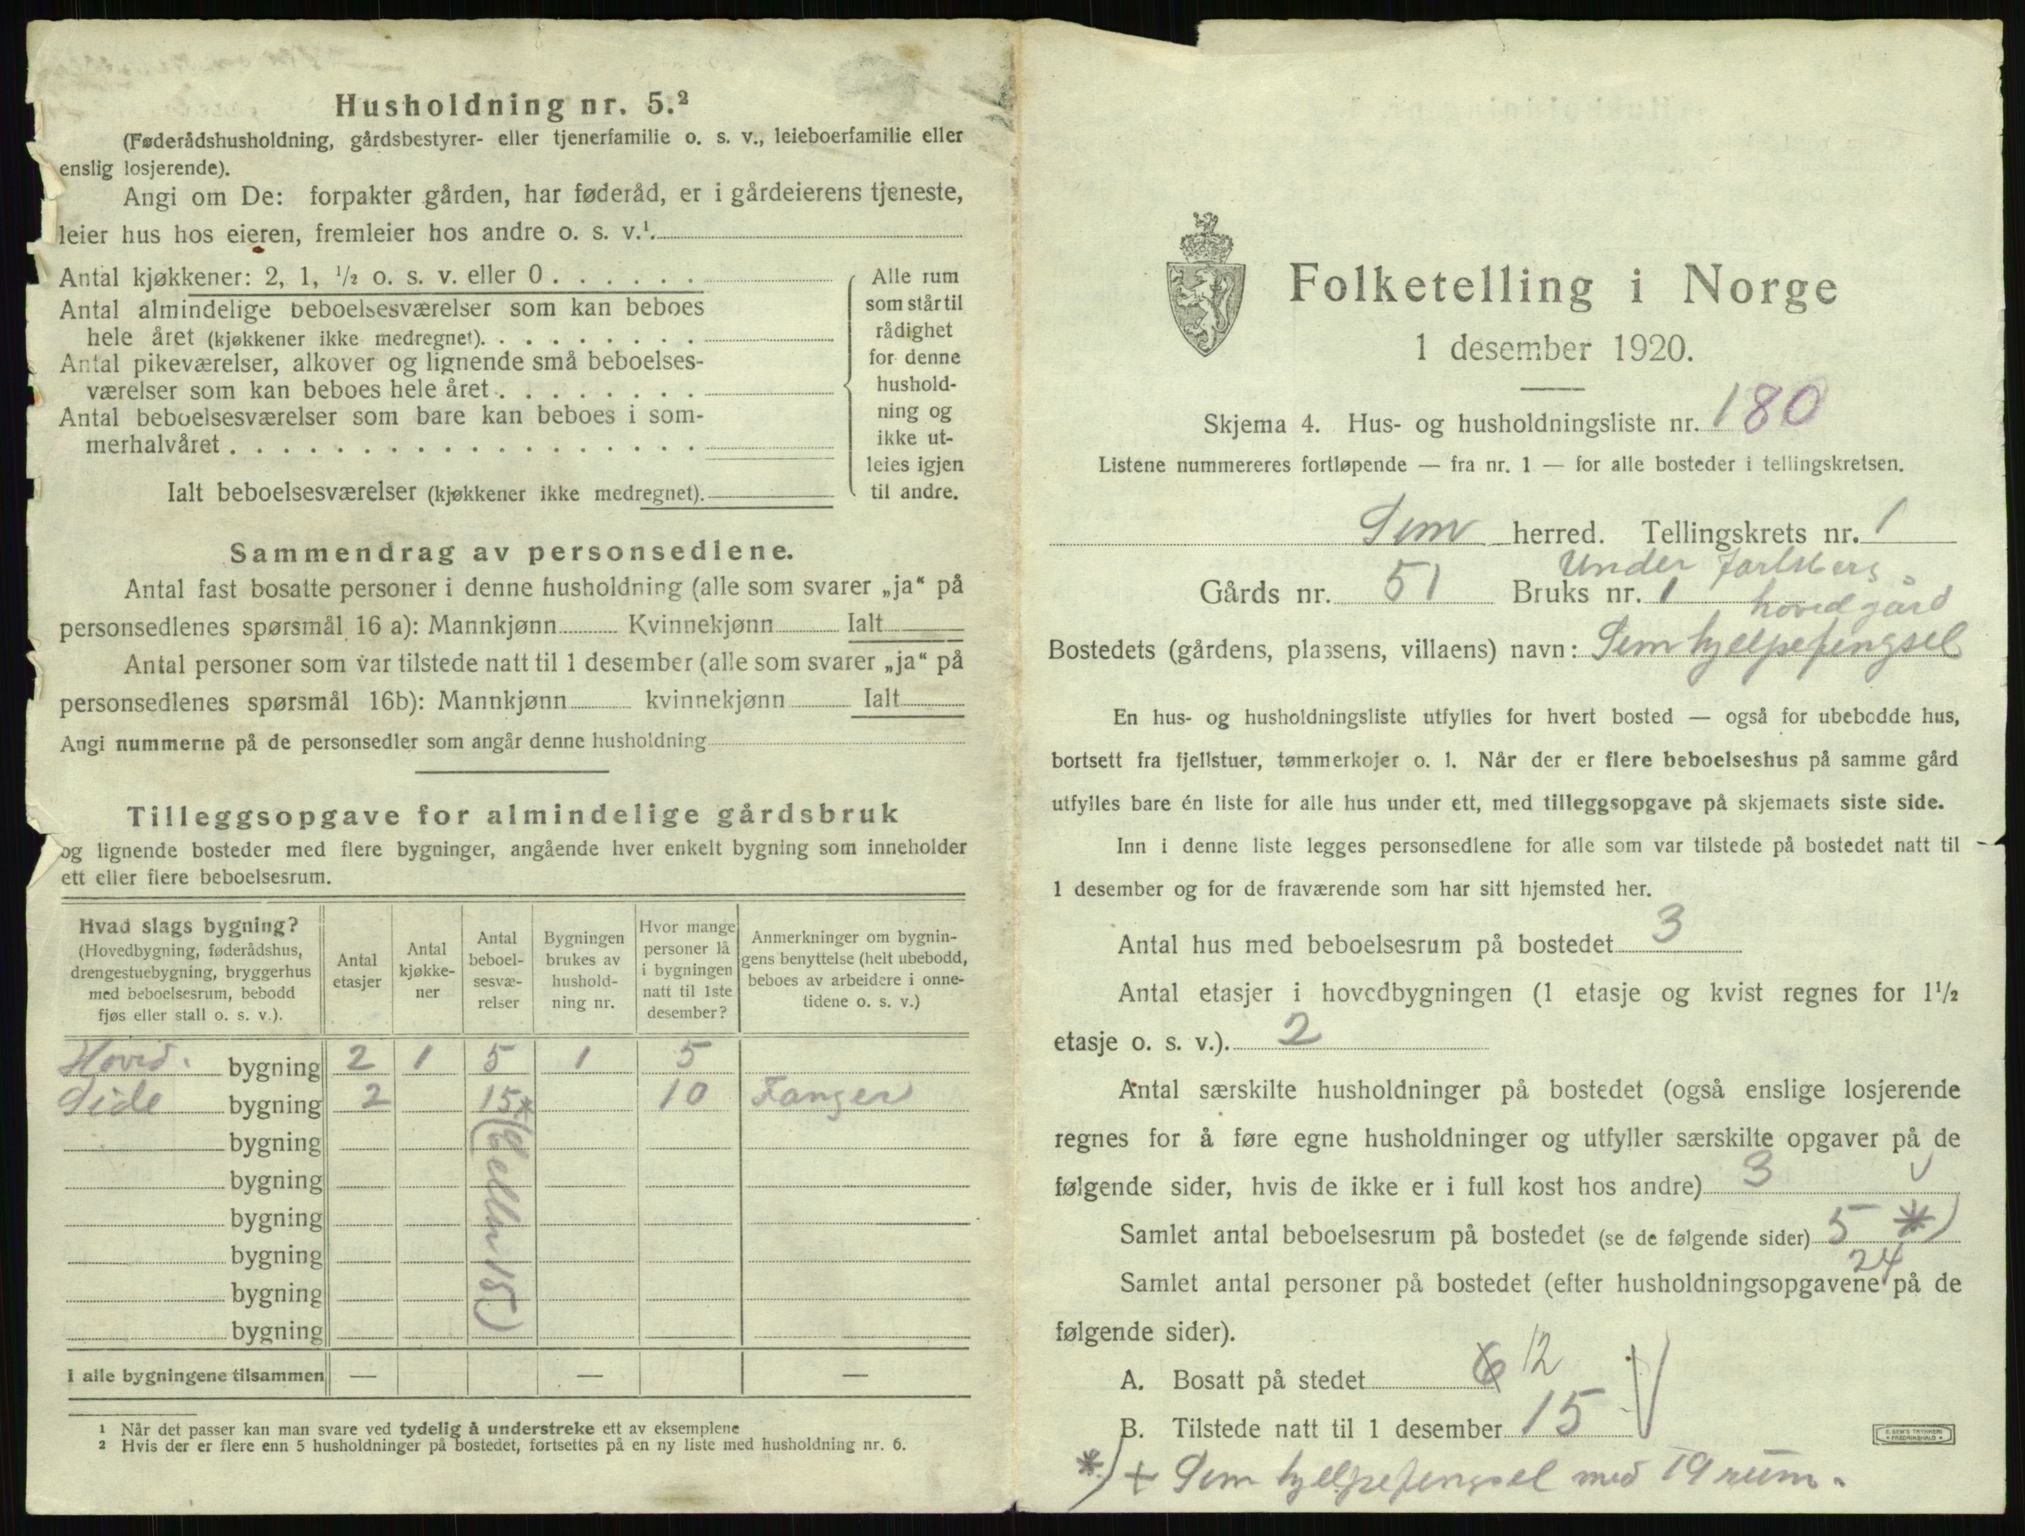 Husholdning nr. 5.²
(Føderådshusholdning, gårdsbestyrer- eller tjenerfamilie o. s. v., leieboerfamilie eller
enslig losjerende).
Angi om De: forpakter gården, har føderåd, er i gårdeierens tjeneste,
leier hus hos eieren, fremleier hos andre o. s. v.¹.
Antal kjøkkener: 2, 1, ½ o. s. v. eller 0
Antal almindelige beboelsesværelser som kan beboes
hele året (kjøkkener ikke medregnet).
Antal pikeværelser, alkover og lignende små beboelses-
værelser som kan beboes hele året
Antal beboelsesværelser som bare kan beboes i som-
merhalvåret
Ialt beboelsesværelser (kjøkkener ikke medregnet).
Alle rum
som står til
rådighet
for denne
hushold-
ning og
ikke ut-
leies igjen
til andre.
Sammendrag av personsedlene.
Antal fast bosatte personer i denne husholdning (alle som svarer „ja“ på
personsedlenes spørsmål 16 a): Mannkjønn Kvinnekjønn Ialt
Antal personer som var tilstede natt til 1 desember (alle som svarer „ja“ på
personsedlenes spørsmål 16b): Mannkjønn kvinnekjønn Ialt
Angi nummerne på de personsedler som angår denne husholdning
Tilleggsopgave for almindelige gårdsbruk
og lignende bosteder med flere bygninger, angående hver enkelt bygning som inneholder
ett eller flere beboelsesrum.
Hvad slags bygning?
(Hovedbygning, føderådshus,
drengestuebygning, bryggerhus
med beboelsesrum, bebodd
fjøs eller stall o. s. v.).
Antal
etasjer
Antal
kjøkke-
ner
Antal
beboel-
sesvæ-
relser
Bygningen
brukes av
hushold-
ning nr.
Hvor mange
personer lå
i bygningen
natt til 1ste
desember?
Anmerkninger om bygnin-
gens benyttelse (helt ubebodd,
beboes av arbeidere i onne-
tidene o. s. v.)
Hoved. bygning 2 1 5 1 5
Side bygning 2 15* 10 Fanger
bygning
bygning
bygning
bygning
bygning
bygning
(Celler 15)
I alle bygningene tilsammen — — —
¹ Når det passer kan man svare ved tydelig å understreke ett av eksemplene
² Hvis der er flere enn 5 husholdninger på bostedet, fortsettes på en ny liste med husholdning nr. 6.
Folketelling i Norge
1 desember 1920.
Skjema 4. Hus- og husholdningsliste nr. 180
Listene nummereres fortløpende — fra nr. 1 — for alle bosteder i tellingskretsen.
Sem herred. Tellingskrets nr. 1
Under Jarlsberg
Gårds nr. 51 Bruks nr. 1 hovedgård
Bostedets (gårdens, plassens, villaens) navn: Sem hjelpefengsel
En hus- og husholdningsliste utfylles for hvert bosted — også for ubebodde hus,
bortsett fra fjellstuer, tømmerkojer o. l. Når der er flere beboelseshus på samme gård
utfylles bare én liste for alle hus under ett, med tilleggsopgave på skjemaets siste side.
Inn i denne liste legges personsedlene for alle som var tilstede på bostedet natt til
1 desember og for de fraværende som har sitt hjemsted her.
Antal hus med beboelsesrum på bostedet 3
Antal etasjer i hovedbygningen (1 etasje og kvist regnes for 1½
etasje o. s. v.). 2
Antal særskilte husholdninger på bostedet (også enslige losjerende
regnes for å føre egne husholdninger og utfyller særskilte opgaver på de
følgende sider, hvis de ikke er i full kost hos andre) 3
Samlet antal beboelsesrum på bostedet (se de følgende sider) 5 *)
24
Samlet antal personer på bostedet (efter husholdningsopgavene på de
følgende sider).
A. Bosatt på stedet 6 12
B. Tilstede natt til 1 desember 15
E. SEM'S TRYKKERI
FREDRIKSHALD
*) + Sem hjelpefengsel med 19 rum.